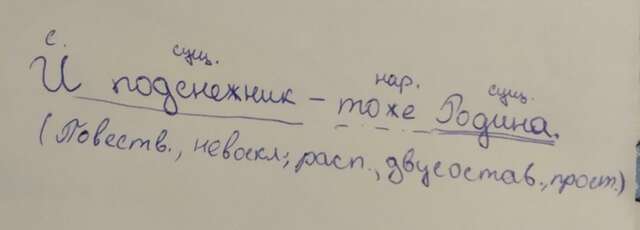 с. сущ. нар. сущ.
И подснежник – тоже Родина.
(Повеств., невоскл., расп., двусостав., прост.)